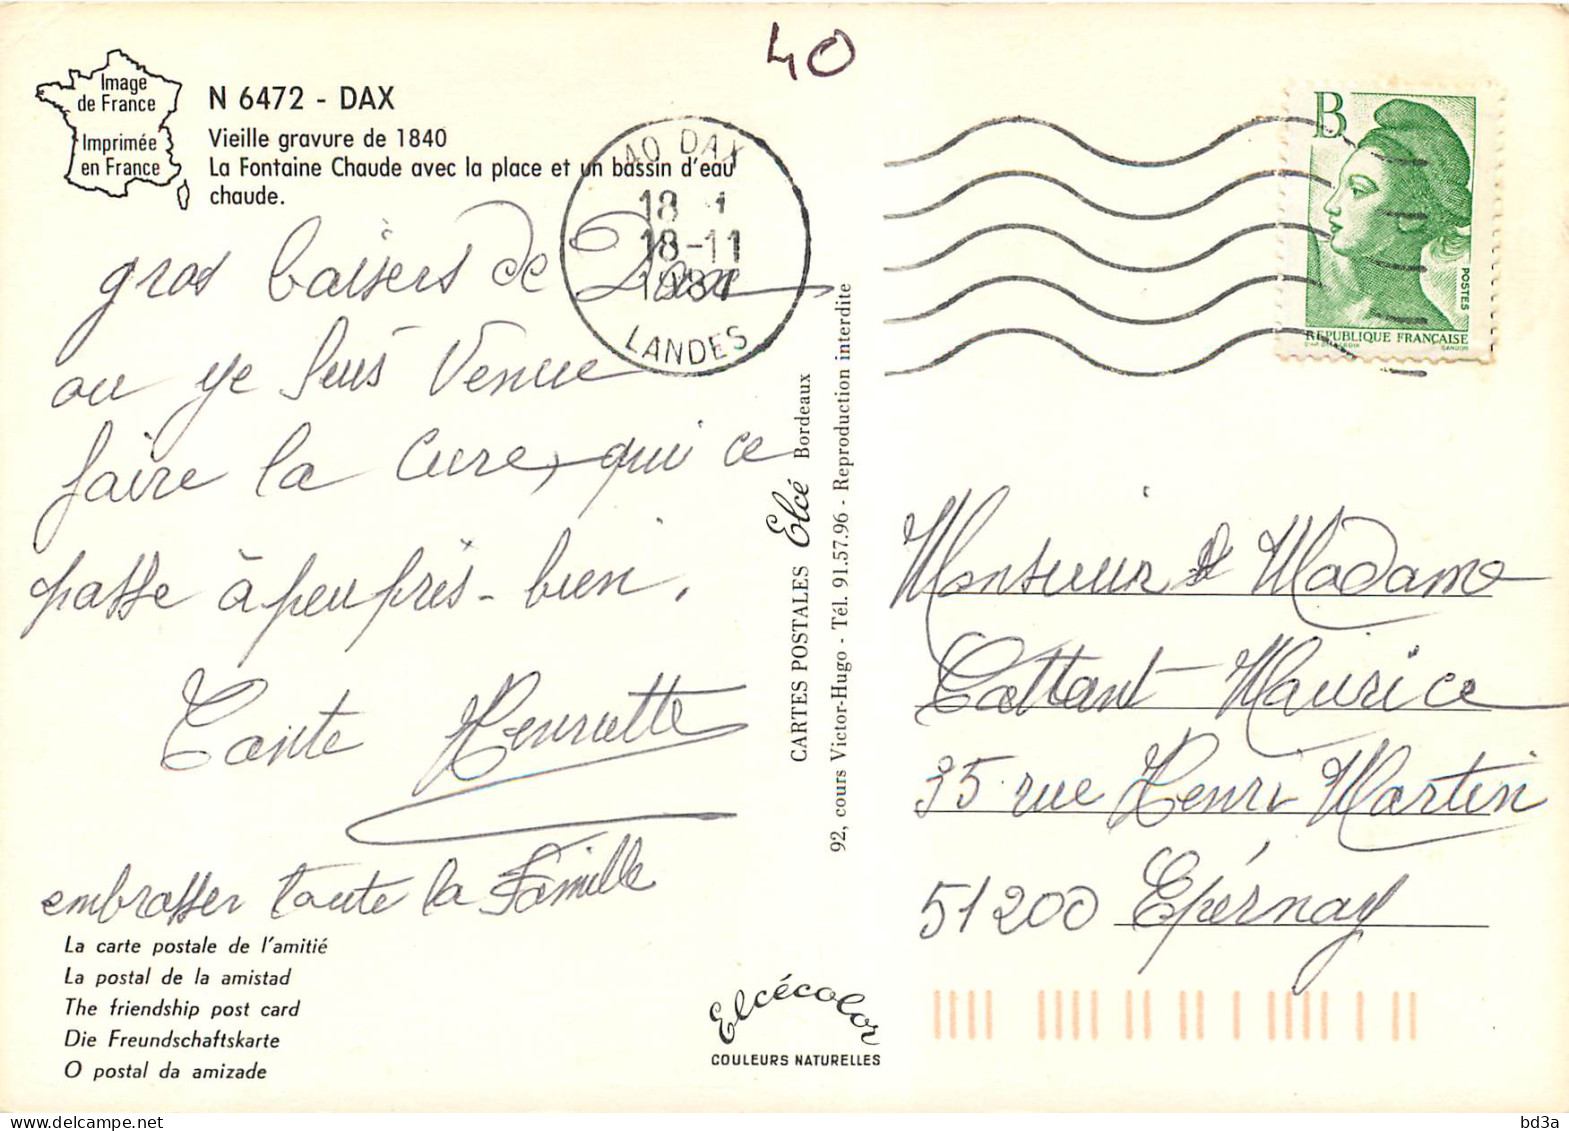 40
Image
de France
Imprimée
en France
N 6472 - DAX
Vieille gravure de 1840
La Fontaine Chaude avec la place et un bassin d'eau
chaude.
40 DAX
18 - 11
LANDES
B
POSTES
REPUBLIQUE FRANÇAISE
gros baisers de Dax
ou je suis venue
faire la cure, qui ce
passe à peu près - bien.
Tante Henriette
embrasser toute la famille
La carte postale de l'amitié
La postal de la amistad
The friendship post card
Die Freundschaftskarte
O postal da amizade
CARTES POSTALES Elcé Bordeaux
92, cours Victor-Hugo - Tél. 91.57.96 - Reproduction interdite
Elcécolor
COULEURS NATURELLES
Monsieur & Madame
Cattant Maurice
35 rue Henri Martin
51200 Epérnay
bd3a